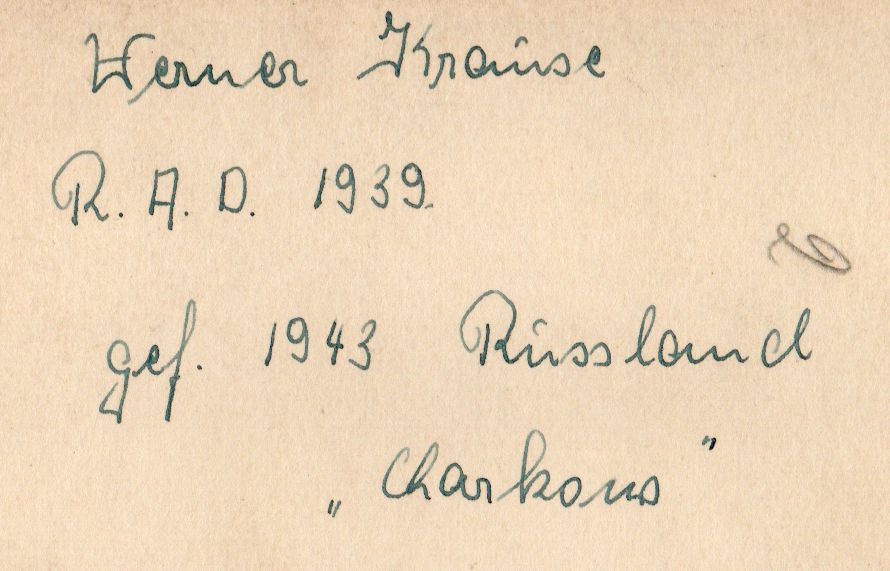 Werner Krause
R. A. D. 1939.
gef. 1943 Russland
„Charkow"